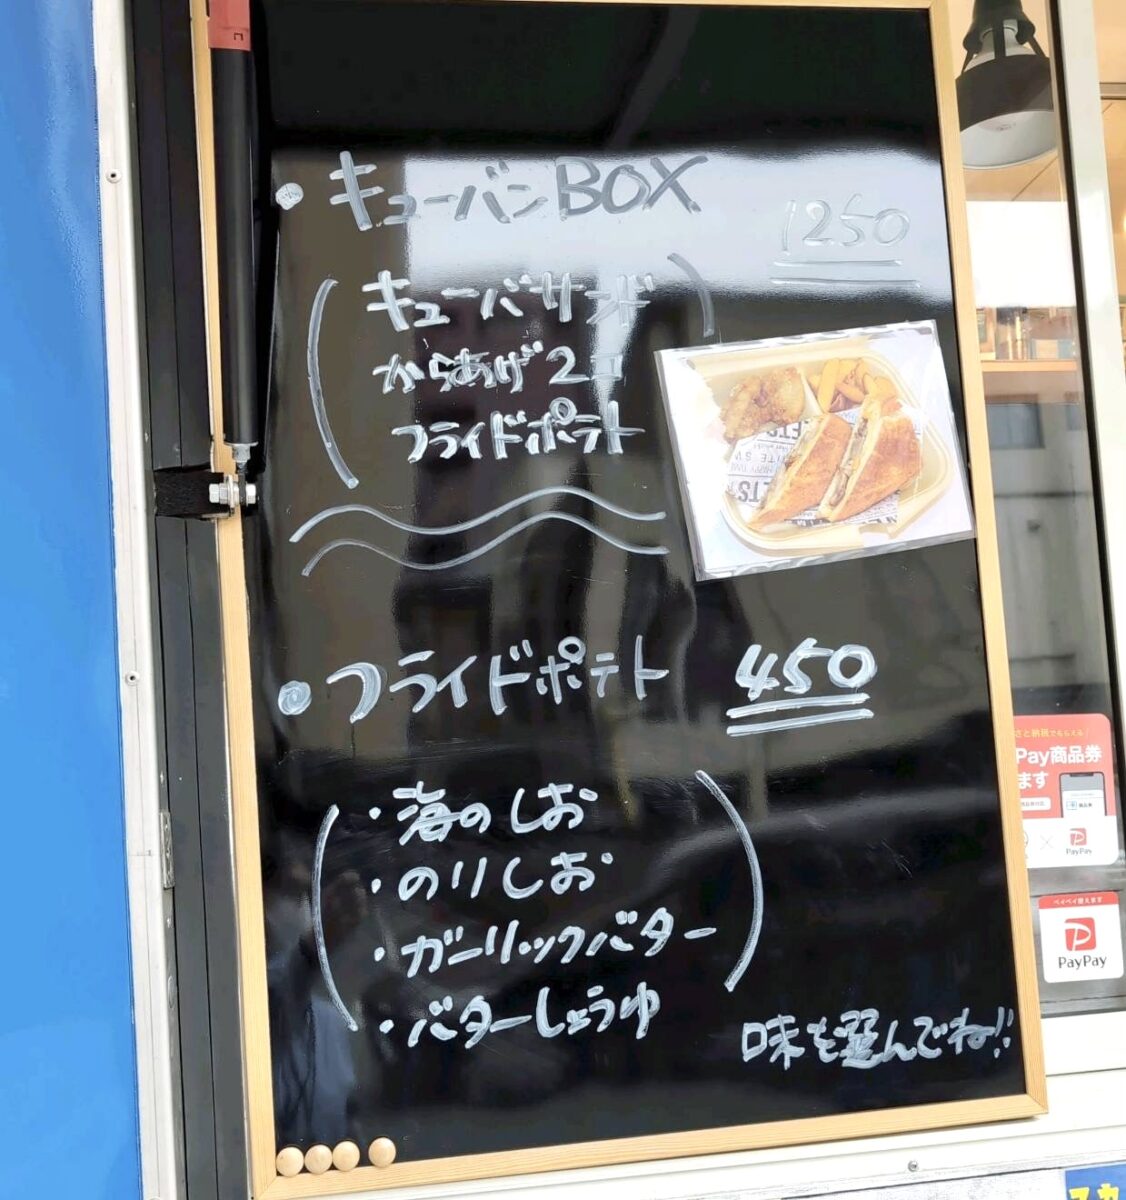 • キューバンBOX 1250
(キューバサンド
からあげ2コ
フライドポテト)
• フライドポテト 450
(・海のしお
・のりしお
・ガーリックバター
・バターしょうゆ)
味を選んでね!!
さと納税でもらえる
Pay商品券
ます
PayPay
ペイペイ使えます
PayPay